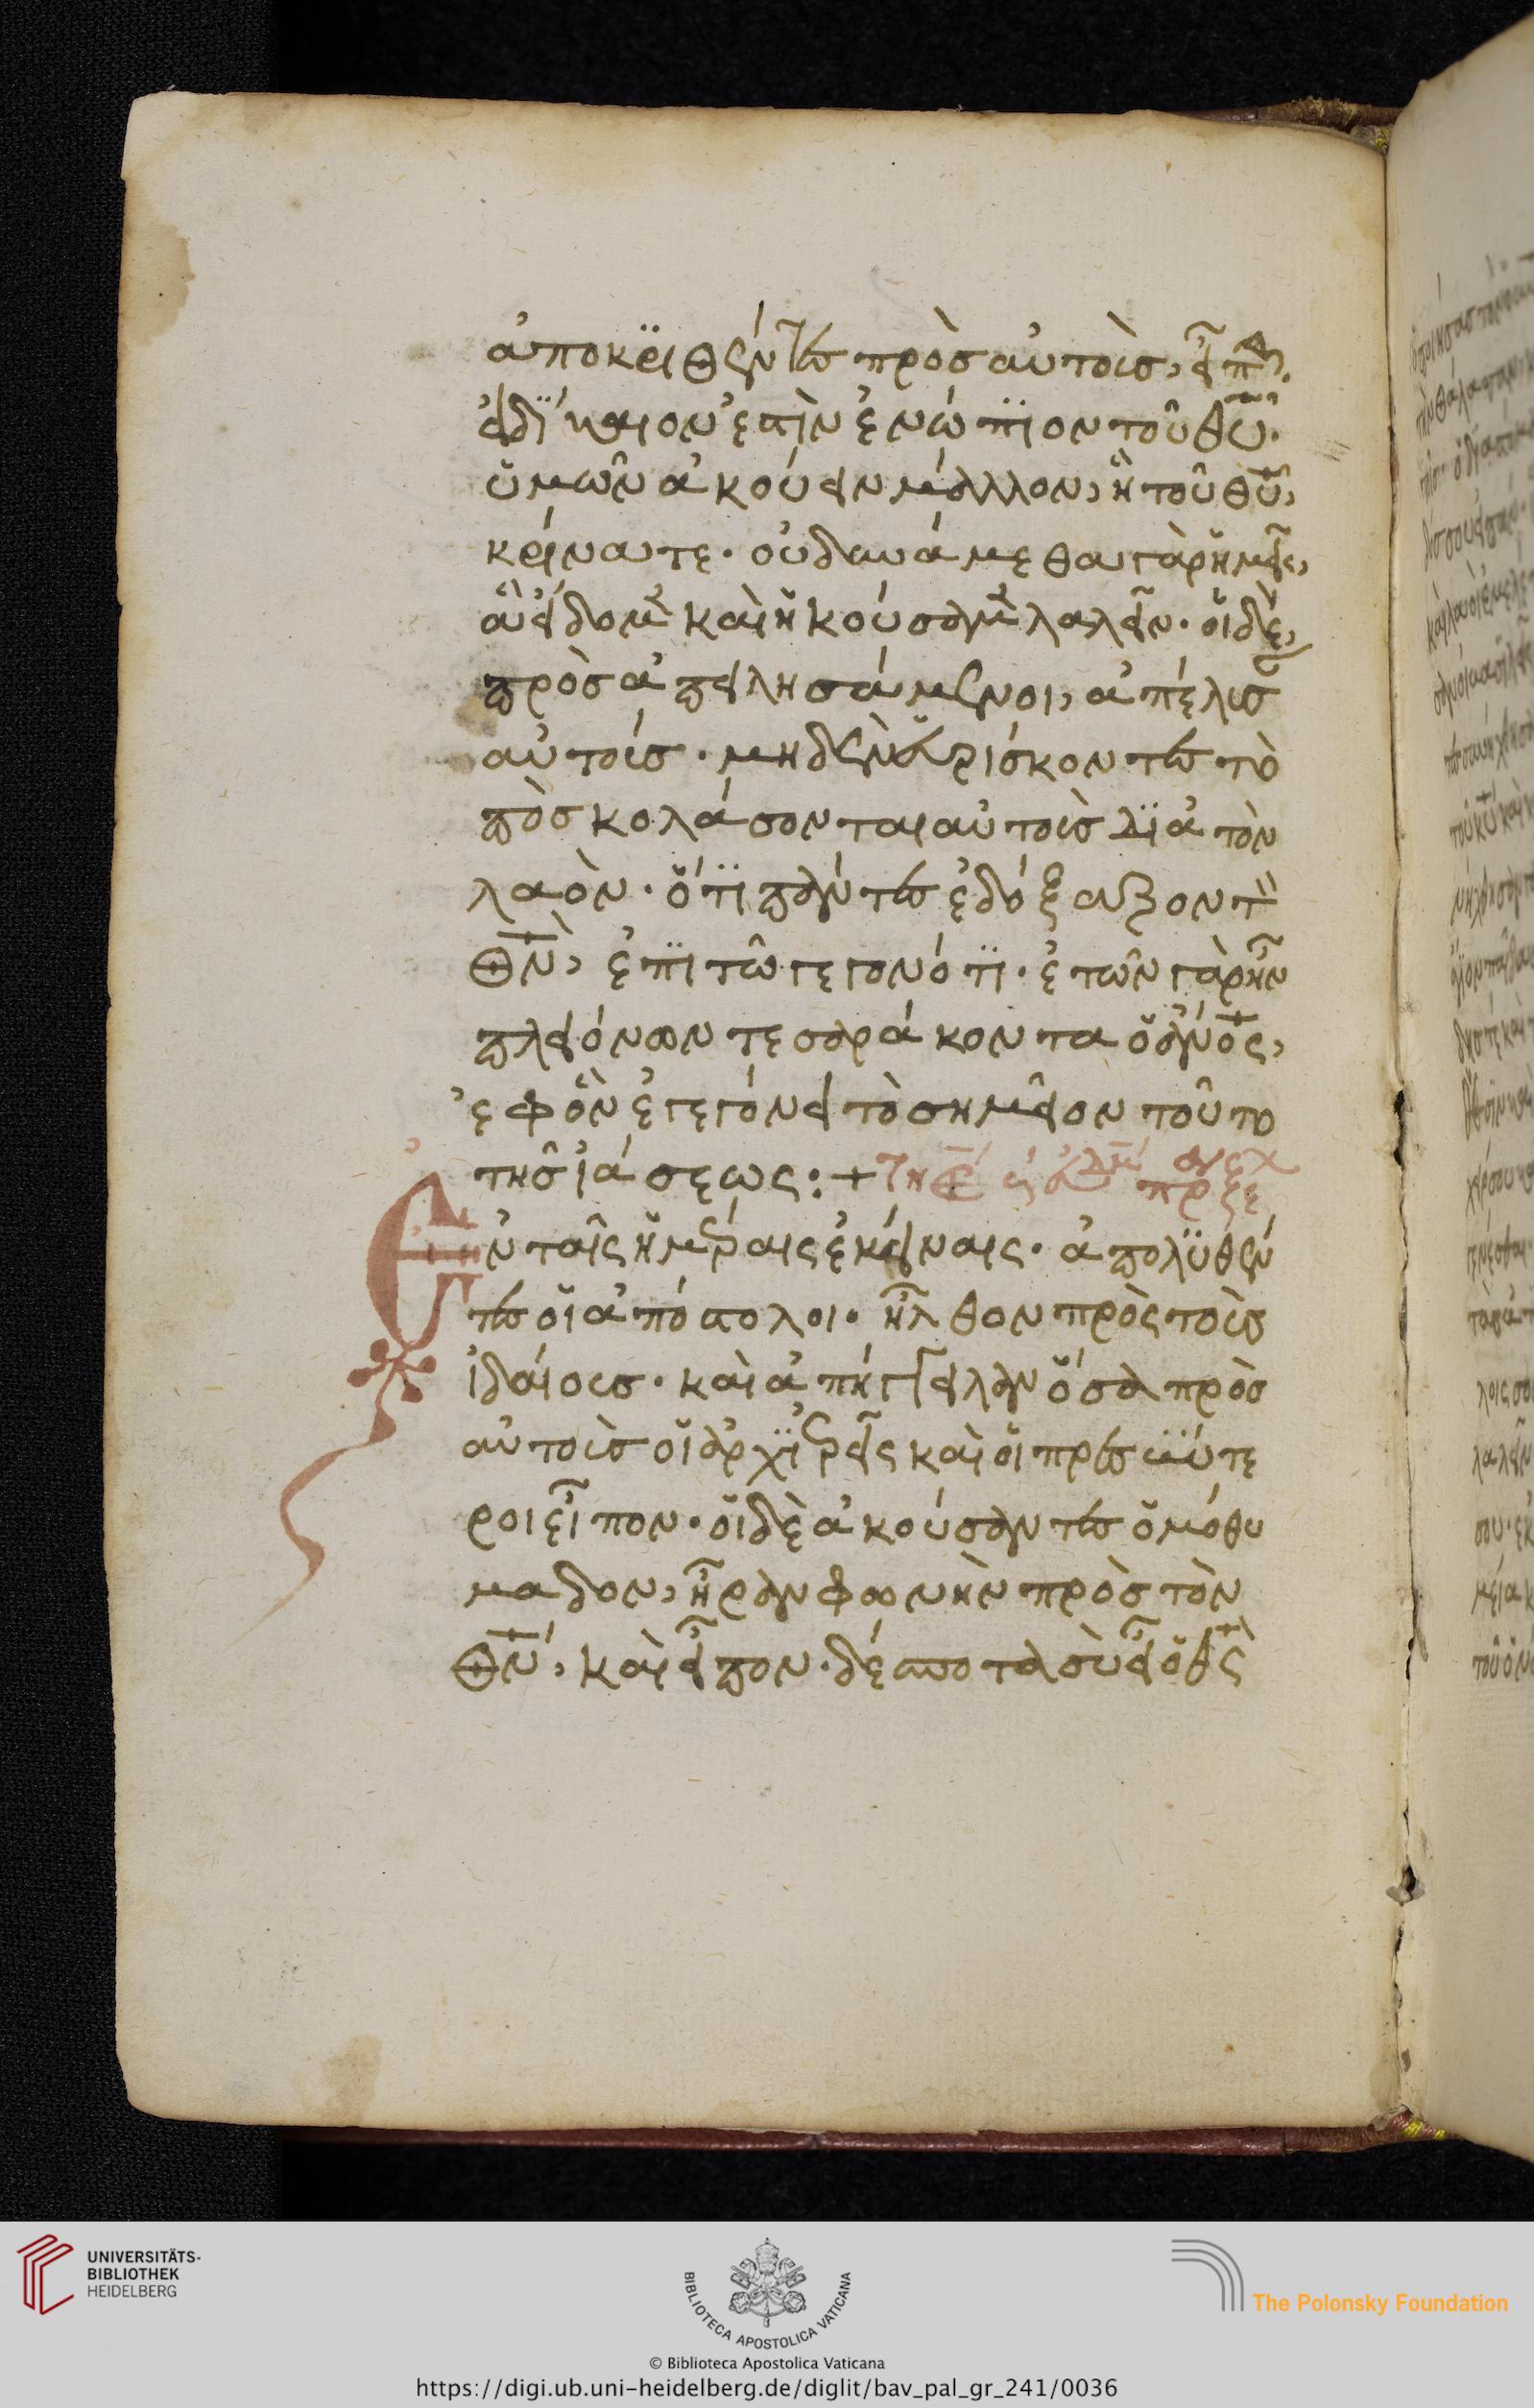 ἀποκρϊθέντες πρὸς αὐτοὺς, εἶπον.
εἰ δΐκαιον ἐστὶν ἐνώπϊον τοῦ θῦ.
ὑμῶν ἀκούειν μάλλον, ἢ τοῦ θῦ,
κρίνατε. οὐ δυνάμεθα γὰρ ἡμεῖς,
ἃ εἴδομεν καὶ ἠκούσαμεν λαλεῖν. οἱ δὲ,
προσαπειλησάμενοι, ἀπέλυσαν
αὐτούς. μηδὲν εὑρίσκοντες τὸ
πὸς κολάσονται αὐτοὺς δϊὰ τὸν
λαὸν. ὅτϊ πάντες ἐδόξαζον τὸν
θν, ἐπϊ τῶ γεγονότϊ. ἐτῶν γὰρ ἦν
πλειόνων τεσαράκοντα ὁ ἄνος,
ἐφ ὃν ἐγεγόνει τὸ σημεῖον τοῦτο
τῆς ἰάσεως:+
Ἐν ταῖς ἡμέραις ἐκείναις. ἀπολϋθέν
τες οἱ ἀπόστολοι. ἦλθον πρὸς τοὺς
ἰδίους. καὶ ἀπήγγειλαν ὅσα πρὸς
αὐτοὺς οἱ ἀρχϊερεῖς καὶ οἱ πρεσβϋτε
ροι εἶπον. οἱ δὲ ἀκούσαντες ὁμόθυ
μαδον, ἦραν φωνὴν πρὸς τὸν
θν, καὶ εἶπον. δέσποτα σὺ εἶ ὁ θς
UNIVERSITÄTS-
BIBLIOTHEK
HEIDELBERG
BIBLIOTECA APOSTOLICA VATICANA
The Polonsky Foundation
© Biblioteca Apostolica Vaticana
https://digi.ub.uni-heidelberg.de/diglit/bav_pal_gr_241/0036